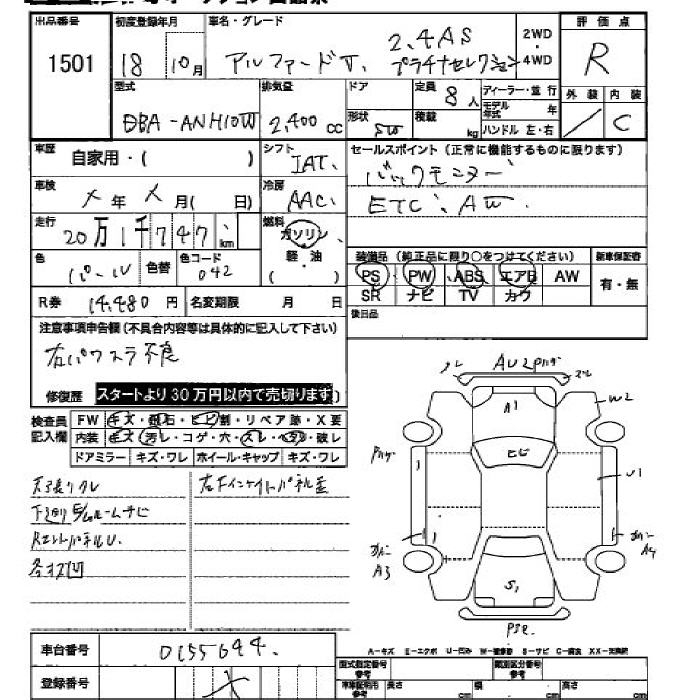 出品番号 初度登録年月 車名・グレード 評価点
1501 18 10月 アルファードV. 2.4AS プラチナセレクション 2WD・4WD R
型式 排気量 ドア 定員 8人 ディーラー・並行 外装 内装
DBA-ANH10W 2,400cc 形状 SW 積載 kg モデル年式 年 ハンドル 左・右 C
車歴 自家用・( ) シフト IAT. セールスポイント (正常に機能するものに限ります)
車検 メ年 メ月( 日) 冷房 AAC. バックモニター
ETC. AW.
走行 20万1千747 km 燃料 ガソリン、軽・油 ( )
色 パール 色替 色コード 042
装備品 (純正品に限り○をつけてください) 新車保証書
PS PW ABS エアB AW 有・無
SR ナビ TV カワ
後日品
R券 14,480円 名変期限 月 日
注意事項申告欄 (不具合内容等は具体的に記入して下さい)
右パワスラ不良
修復歴 スタートより30万円以内で売切ります
検査員記入欄 FW キズ・飛石・ヒビ割・リペア跡・X要
内装 キズ・汚レ・コゲ・穴・スレ・ヘタリ・破レ
ドアミラー キズ・ワレ ホイール・キャップ キズ・ワレ
下廻り
A1
ヒビ
W2
U1
A3
A4
S1
車台番号 0155644.
登録番号
A-キズ E-エクボ U-凹ミ W-補修跡 S-サビ C-腐食 XX-交換済
型式指定番号 参考 類別区分番号 参考
車庫証明用 参考 長さ cm 幅 cm 高さ cm